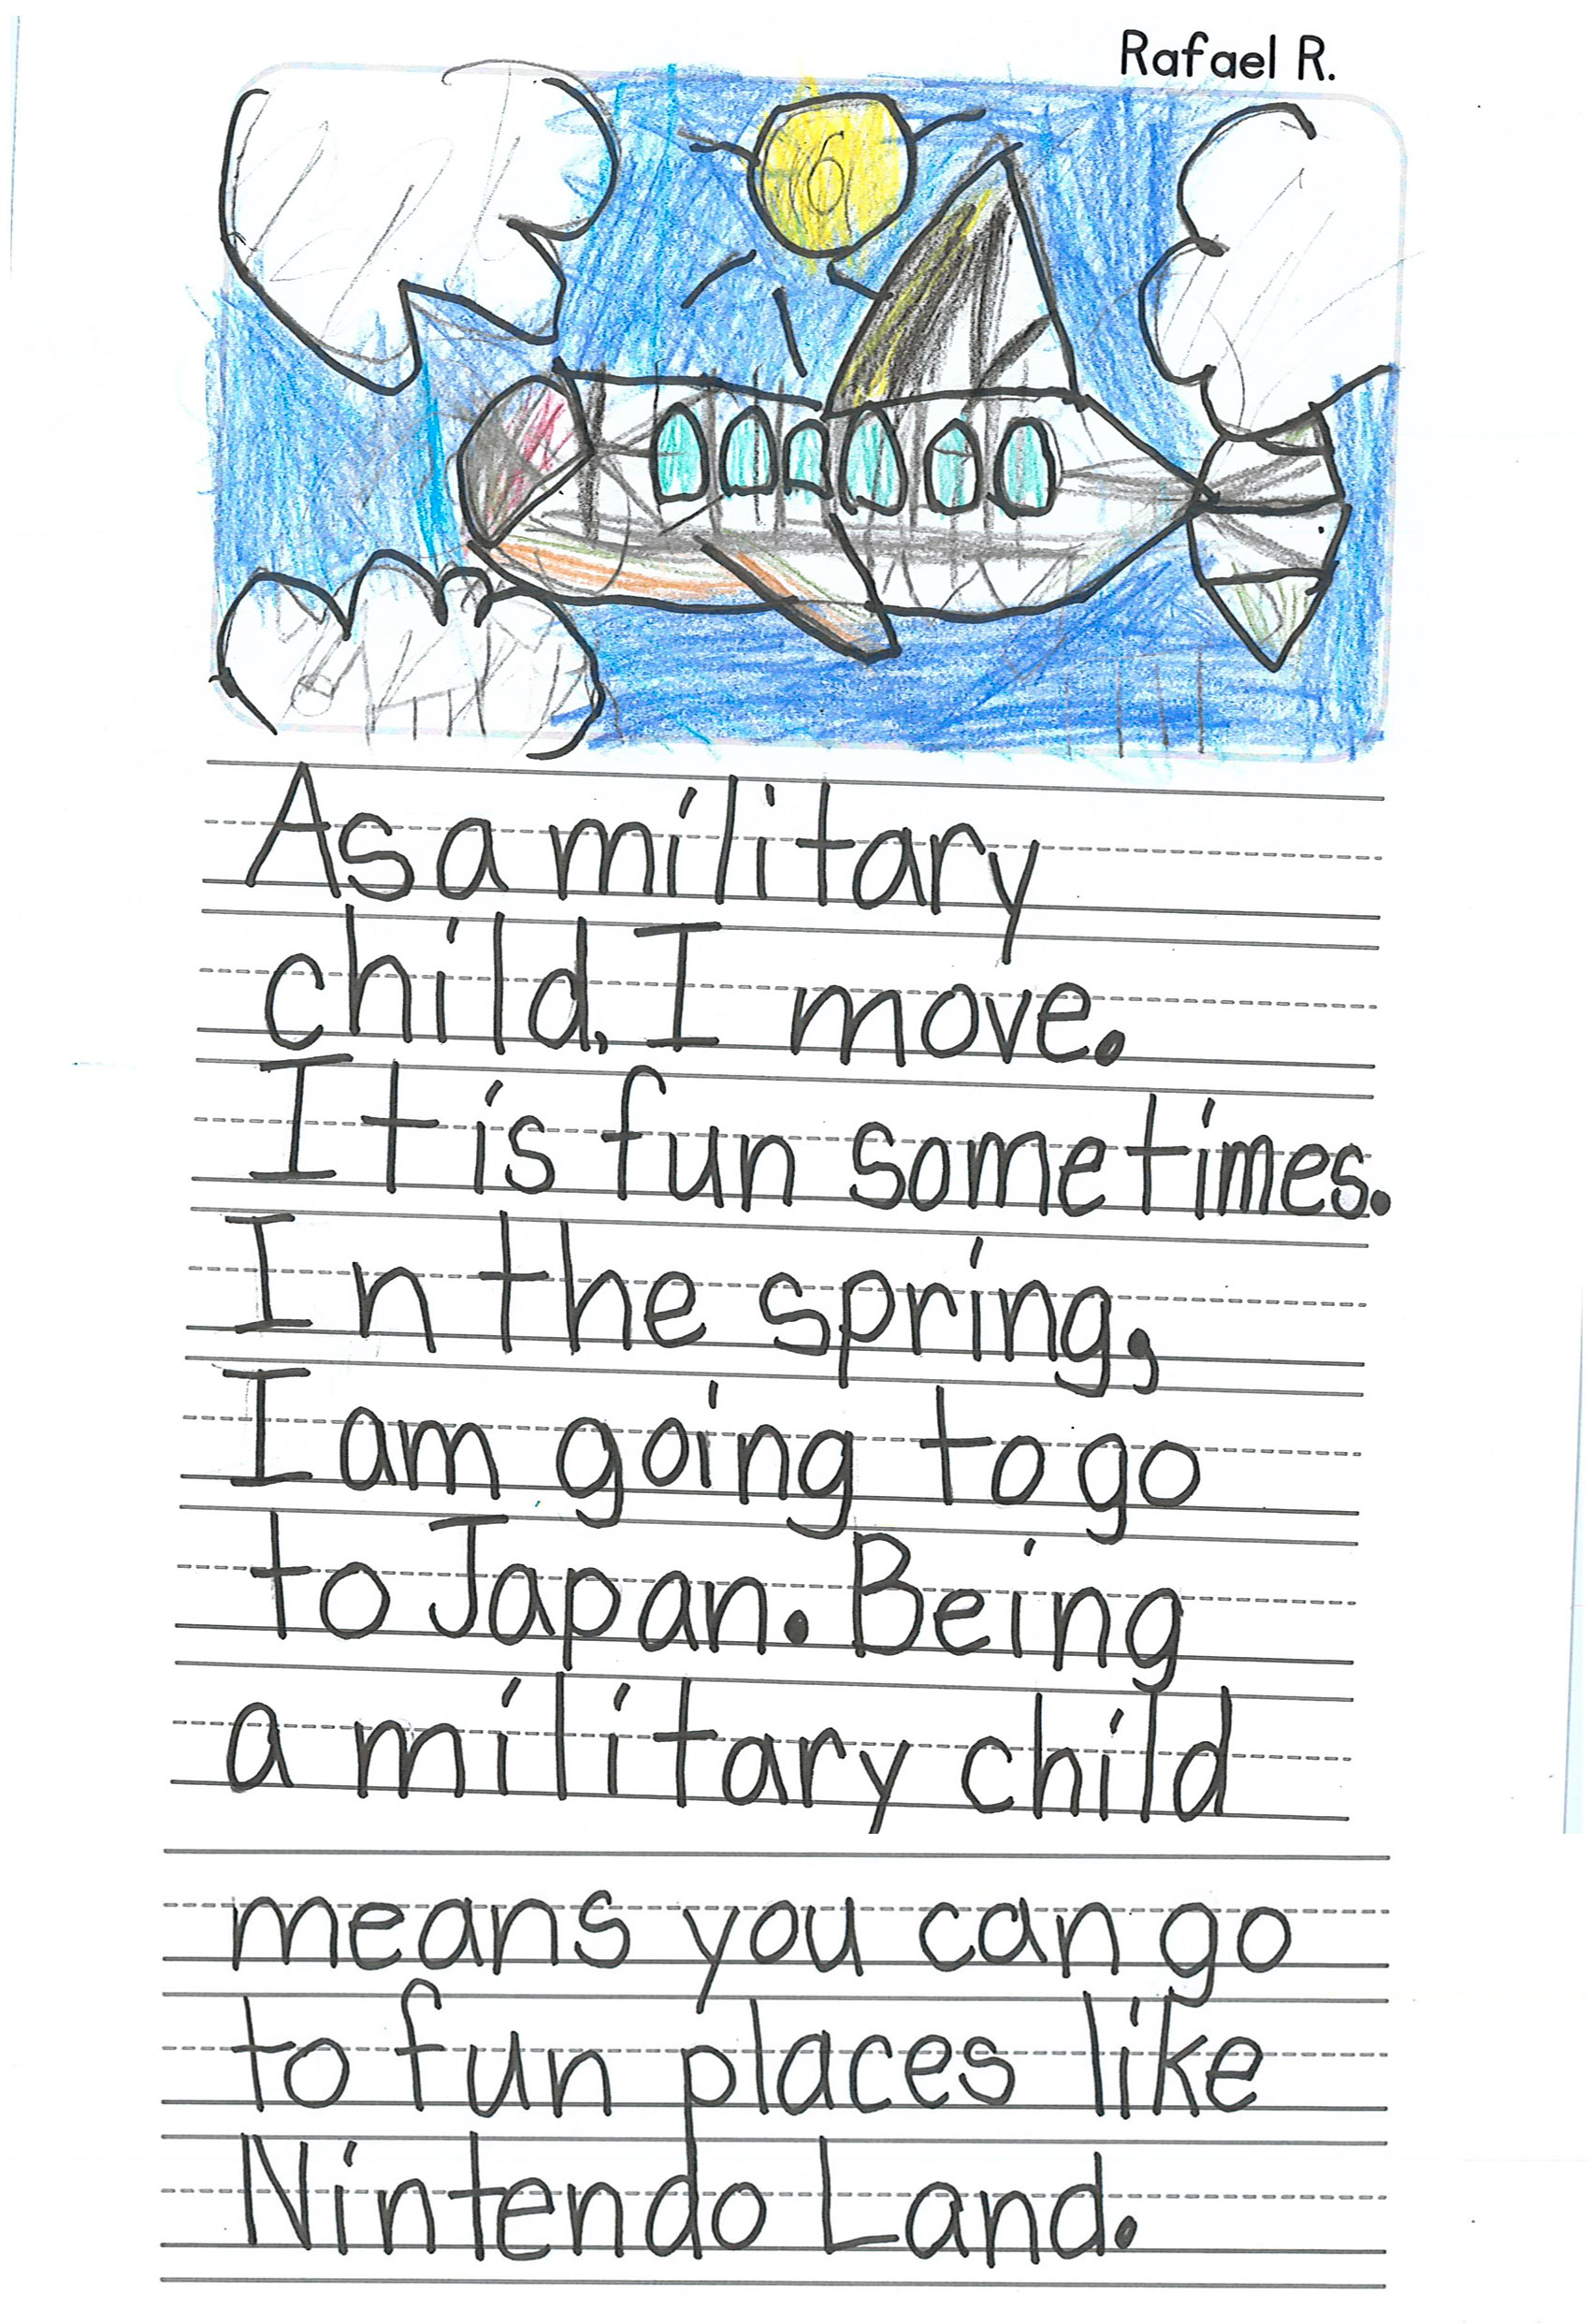 Rafael R.
As a military
child, I move.
It is fun sometimes.
In the spring,
I am going to go
to Japan. Being
a military child
means you can go
to fun places like
Nintendo Land.